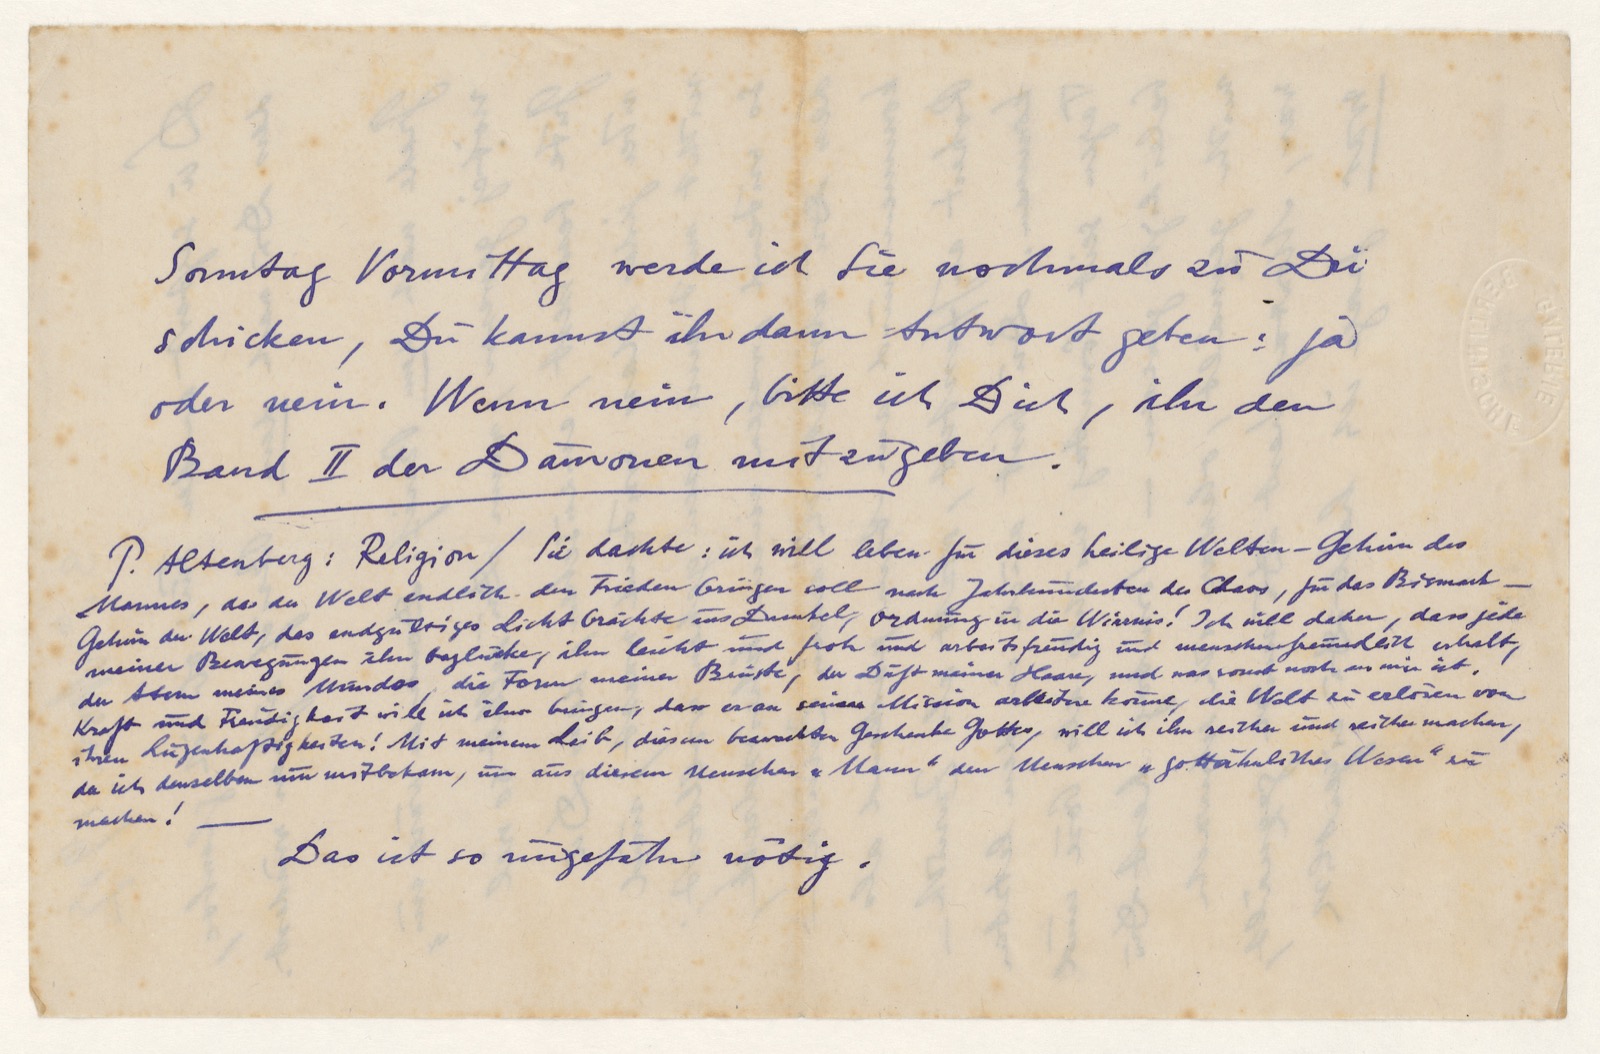 Sonntag Vormittag werde ich Sie nochmals zu Dir
schicken, Du kannst ihr dann Antwort geben: ja
oder nein. Wenn nein, bitte ich Dich, ihr den
Band II der Dämonen mitzugeben.
P. Altenberg: Religion / Sie dachte: ich will leben für dieses heilige Welten-Gehirn des
Mannes, das der Welt endlich den Frieden bringen soll nach Jahrhunderten des Chaos, für das Bismark-
Gehirn der Welt, das endgültiges Licht brächte ins Dunkel, Ordnung in die Wirrnis! Ich will daher, dass jede
meiner Bewegungen ihn beglücke, ihn leicht und froh und arbeitsfreudig und menschenfreundlich erhalt,
der Atem meines Mundes, die Form meiner Brüste, der Duft meiner Haare, und was sonst noch an mir ist.
Kraft und Freudigkeit will ich ihm bringen, dass er an seiner Mission arbeiten könne, die Welt zu erlösen von
ihren Lügenhaftigkeiten! Mit meinem Leibe, diesem Geschenke Gottes, will ich ihn reicher und reicher machen,
da ich denselben nur mitbekam, um aus diesem Menschen „Mann“ den Menschen „gottähnliches Wesen“ zu
machen! —
Das ist so ungefähr nötig.
GALERIE